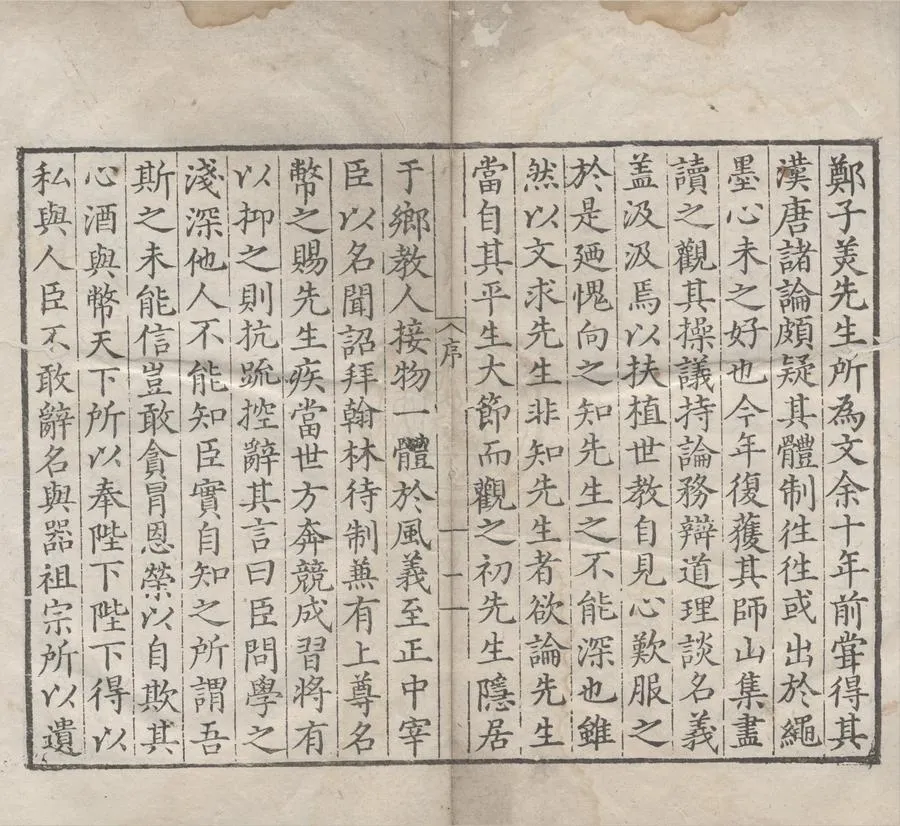 鄭子美先生所為文余十年前甞得其
漢唐諸論頗疑其體制徃徃或出於繩
墨心未之好也今年復獲其師山集盡
讀之觀其操議持論務辯道理談名義
盖汲汲焉以扶植世教自見心歎服之
於是廼愧向之知先生之不能深也雖
然以文求先生非知先生者欲論先生
當自其平生大節而觀之初先生隱居
序
一
于鄉教人接物一體於風義至正中宰
臣以名聞詔拜翰林待制兼有上尊名
幣之賜先生疾當世方奔競成習將有
以抑之則抗䟽控辭其言曰臣問學之
淺深他人不能知臣實自知之所謂吾
斯之未能信豈敢貪冒恩榮以自欺其
心酒與幣天下所以奉陛下陛下得以
私與人臣不敢辭名與器祖宗所以遺